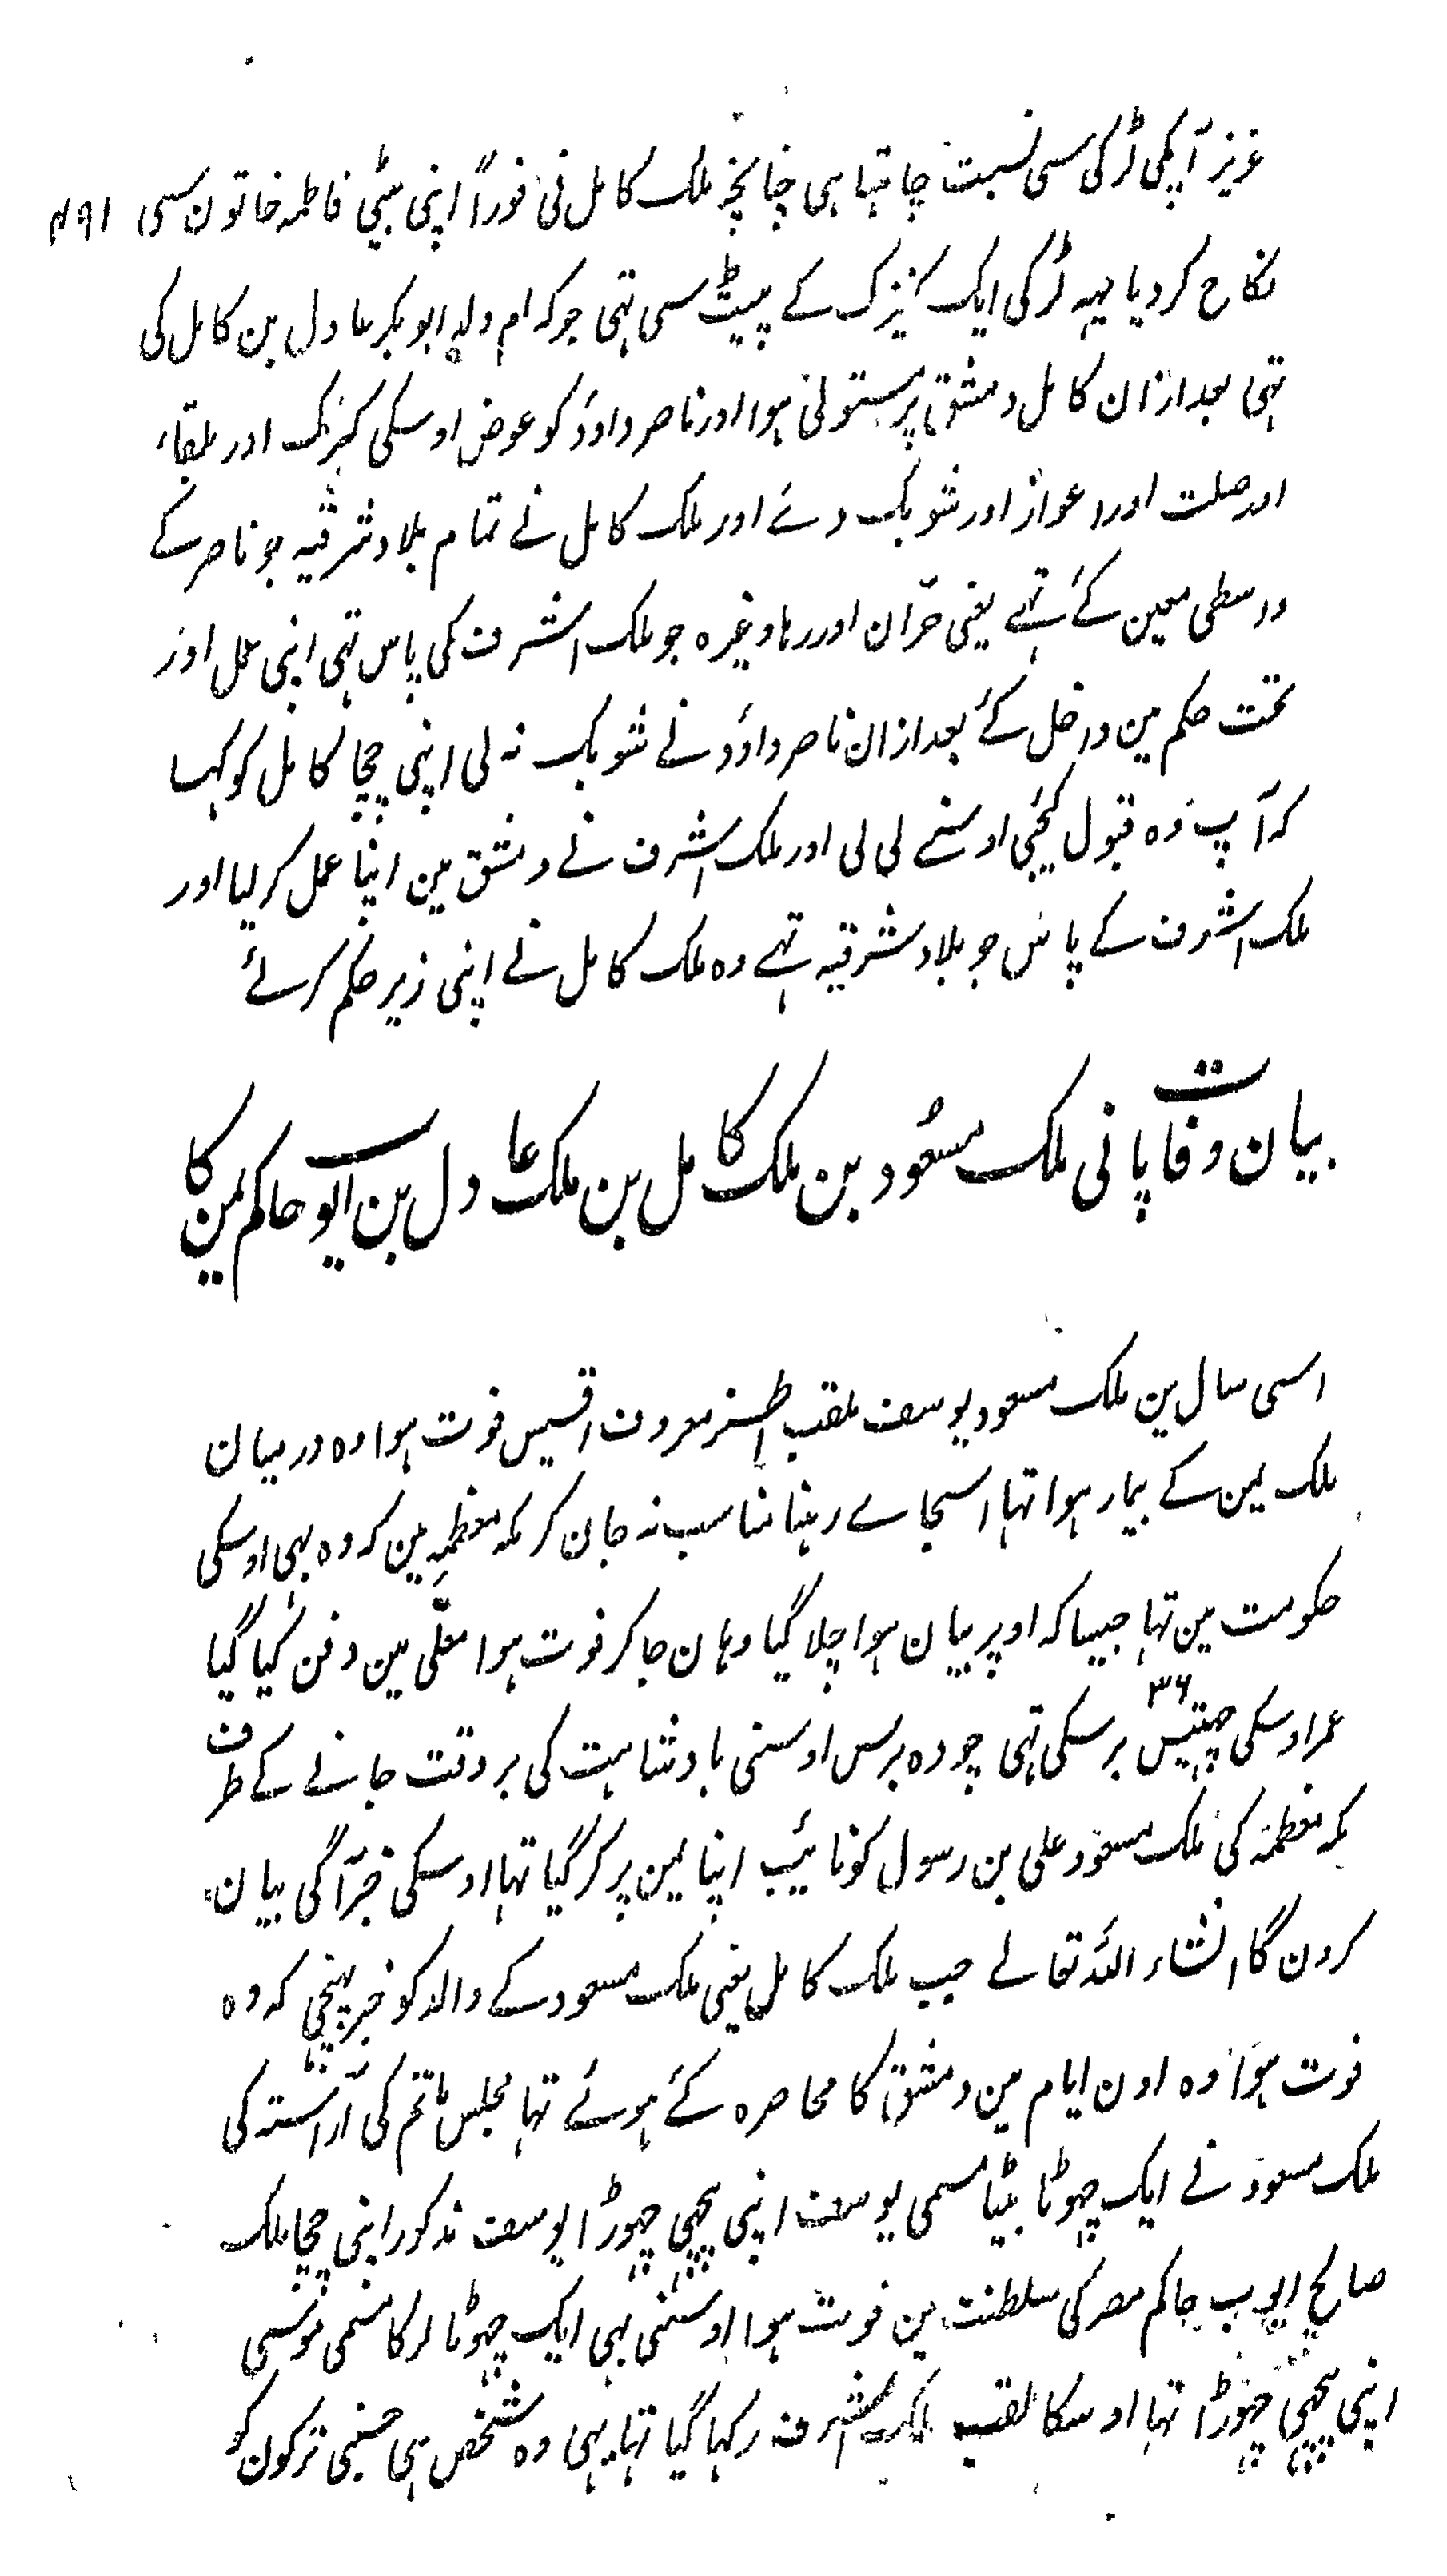 عزیز آپکی لڑکی سی نسبت چاہتا ہی چنانچہ ملک کامل نی فوراً اپنی بیٹی فاطمہ خاتون سی ۴۹۱
نکاح کر دیا یہہ لڑکی ایک کنیزک کے پیٹ سی تہی جو کہ ام ولد ابوبکر عادل بن کامل کی
تہی بعد ازان کامل دمشق پر مستولی ہوا اور ناصر داؤد کو عوض اوسکی کرک اور بلقاء
اور صلت اور اعواز اور شوبک دئے اور ملک کامل نے تمام بلاد شرقیہ جو ناصر کے
واسطی معین کئے تہے یعنی حرّان اور رہا وغیرہ جو ملک اشرف کی پاس تہی اپنی عمل اور
تحت حکم مین داخل کئے بعد ازان ناصر داؤد نے شوبک نہ لی اپنی چچا کامل کو کہا
کہ آپ وہ قبول کیجئی اوسنے لی لی اور ملک اشرف نے دمشق مین اپنا عمل کر لیا اور
ملک اشرف کے پاس جو بلاد شرقیہ تہے وہ ملک کامل نے اپنی زیر حکم کر لئے
بیان وفات پانی ملک مسعُود بن ملک کامل بن ملک عادل بن ایوب حاکم یمن کا
اسی سال مین ملک مسعود یوسف ملقب اطسز معروف اقسیس فوت ہوا وہ درمیان
ملک یمن کے بیمار ہوا تہا اسجاے رہنا مناسب نہ جان کر مکہ معظمہ مین کہ وہ بہی اوسکی
حکومت مین تہا جیسا کہ اوپر بیان ہوا چلا گیا وہان جا کر فوت ہوا معلّی مین دفن کیا گیا
عمر اوسکی چہتیس ۳۶ برسکی تہی چودہ برس اوسنی بادشاہت کی بروقت جانے کے طرف
مکہ معظمہ کی ملک مسعود علی بن رسول کو نائیب اپنا یمن پر کر گیا تہا اوسکی خبر آگی بیان
کرون گا انشاء اللہ تعالے جب ملک کامل یعنی ملک مسعود کے والد کو خبر پہنچی کہ وہ
فوت ہوا وہ اون ایام مین دمشق کا محاصرہ کئے ہوئے تہا مجلس ماتم کی آراستہ کی
ملک مسعود نے ایک چہوٹا بیٹا مسمی یوسف اپنی پیچہی چہوڑا یوسف مذکور اپنی چچا ملک
صالح ایوب حاکم مصر کی سلطنت مین فوت ہوا اوسنی بہی ایک چہوٹا لرکا مسمی موسی
اپنی پیچہی چہوڑا تہا اوسکا لقب ملک اشرف رکہا گیا تہا یہی وہ شخص ہی جسنی ترکون کو